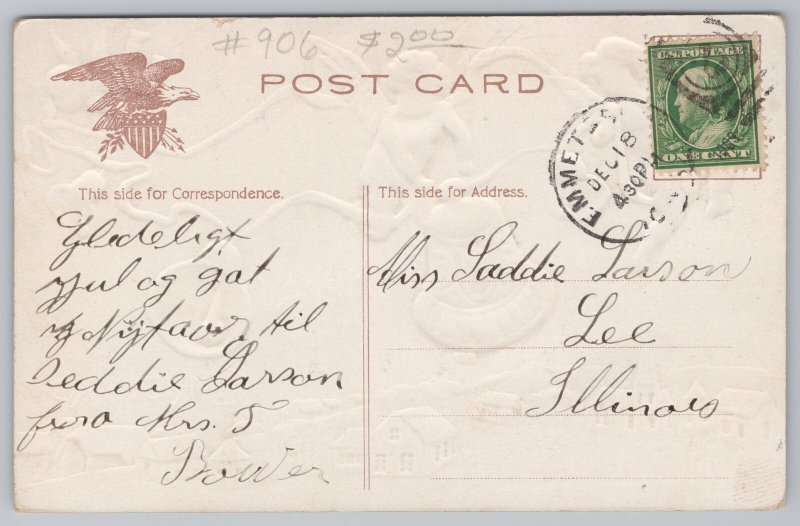 #906 $2.00
POST CARD
U.S. POSTAGE
ONE CENT
DEC 18
430 PM
This side for Correspondence.
This side for Address.
Gledeligt
Jul og gat
Nytaar til
Seddie Larson
fro Mrs. T
Bower
Miss Saddie Larson
Lee
Illinois